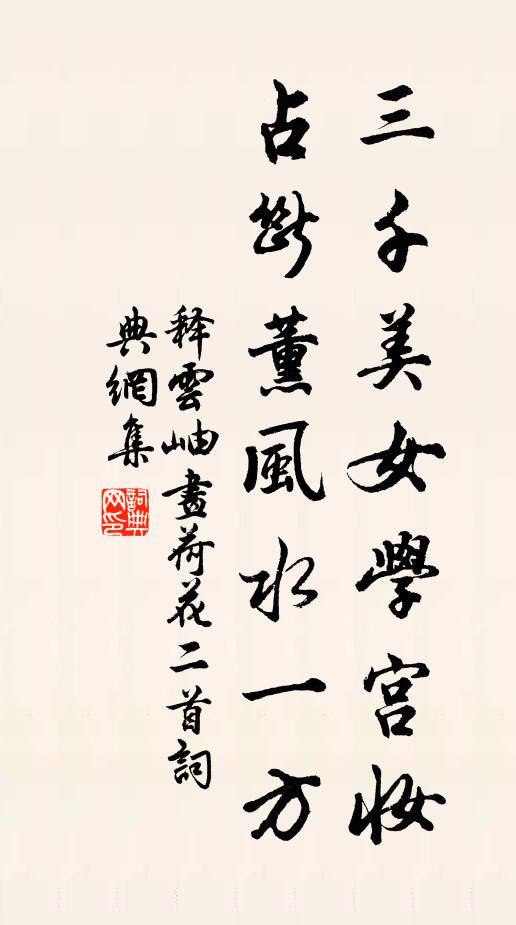 三千美女學宫妝
占断薰風水一方
释雲岫畫荷花二首詞
典網集
詞典
网印